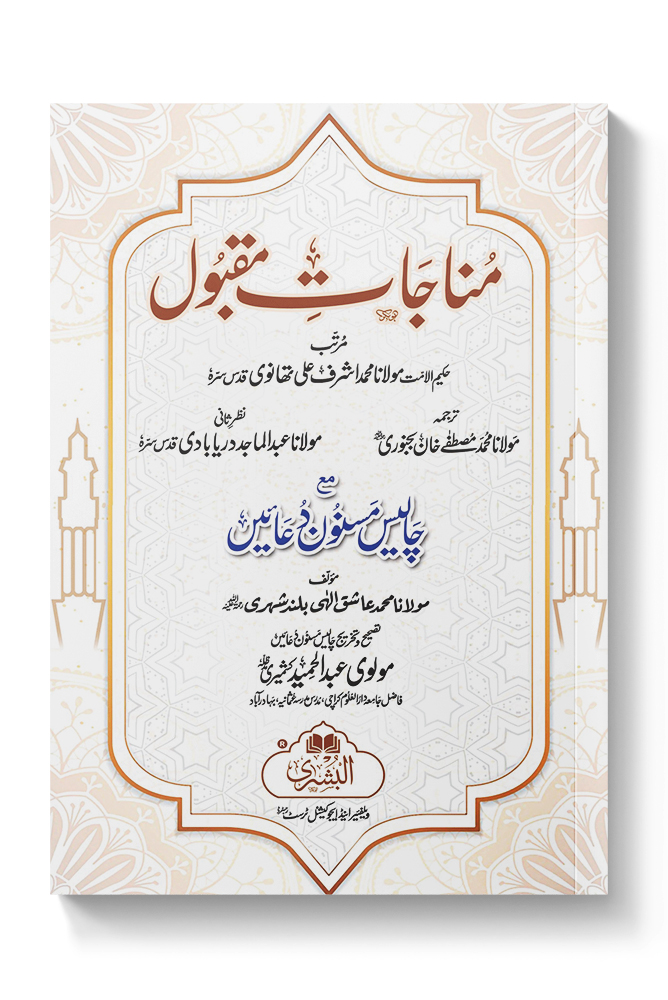 مُناجَاتِ مقبُول
مُرتّب
حکیم الامّت مولانا محمد اشرف علی تھانوی قدس سرہٗ
ترجمہ
مولانا محمّد مصطفےٰ خان بجنوری
نظرِ ثانی
مولانا عبد الماجد دریابادی قدس سرہٗ
مع
چالیس مسنُون دُعائیں
مؤلّف
مولانا محمد عاشق الٰہی بلند شہری
تصحیح و تخریج چالیس مسنون دُعائیں
مولوی عبد الحمید کشمیری
فاضل جامعہ دارالعلوم کراچی، مدرس مدرسہ عثمانیہ، بہادرآباد
®
البُشریٰ
ویلفیئر اینڈ ایجوکیشنل ٹرسٹ